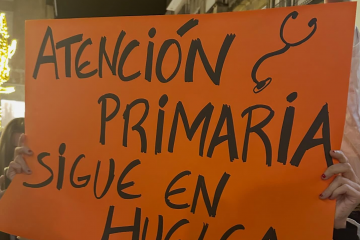 ATENCIÓN
PRIMARIA
SIGUE EN
HUELGA